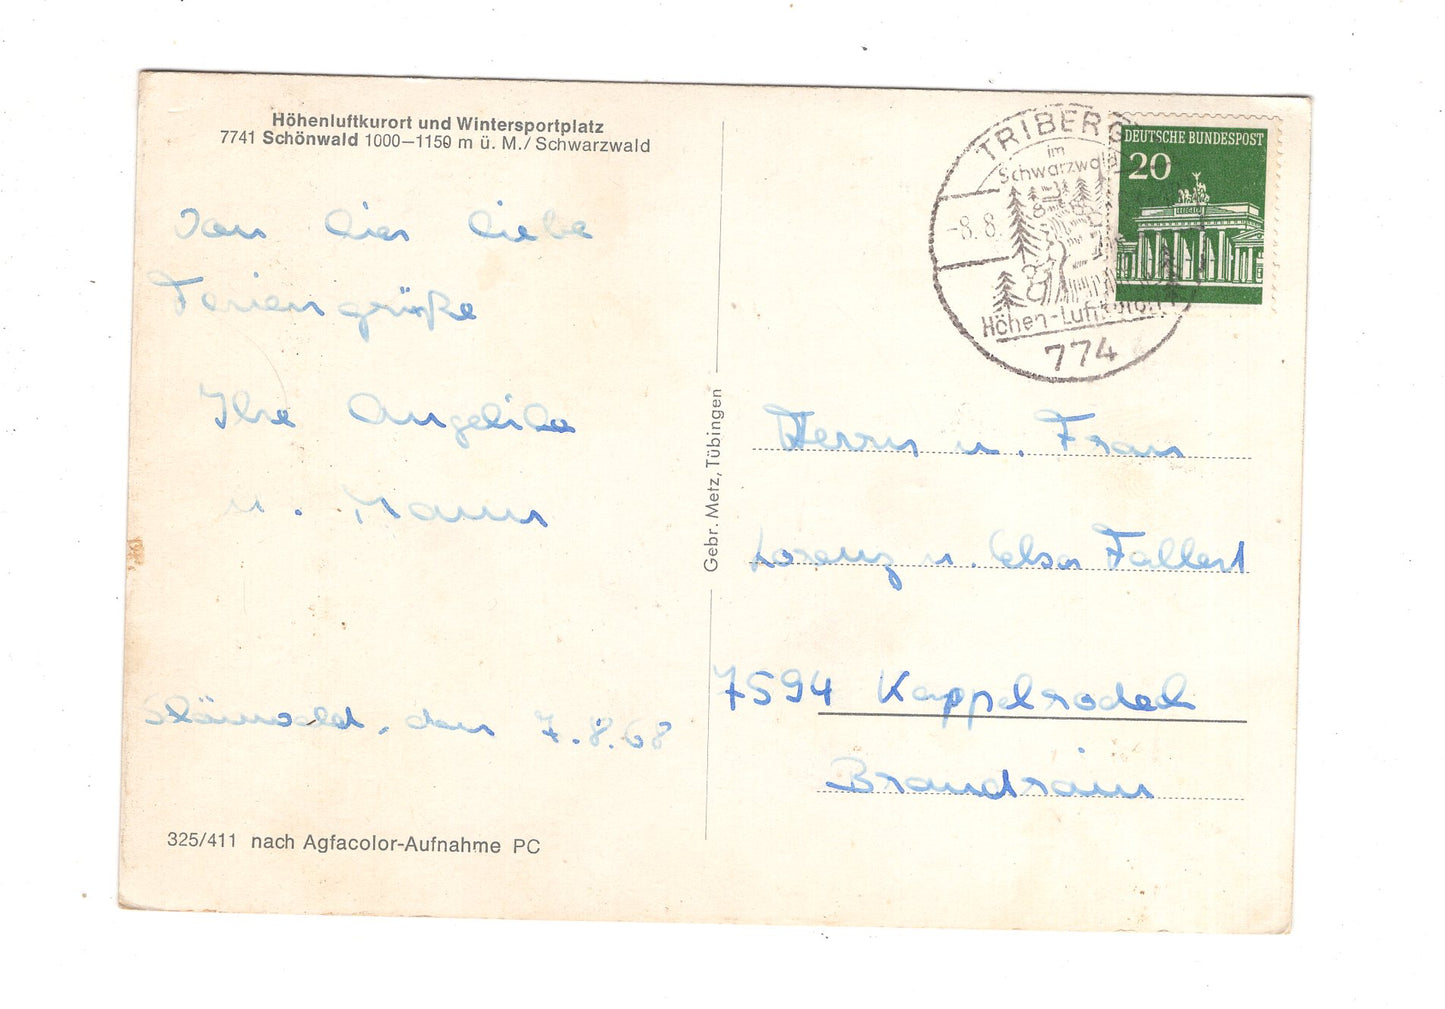 Höhenluftkurort und Wintersportplatz
7741 Schönwald 1000–1150 m ü. M./Schwarzwald
Von hier liebe
Feriengrüße
Ihre Angelika
u. Mann
Schönwald, den 7.8.68
325/411 nach Agfacolor-Aufnahme PC
Gebr. Metz, Tübingen
TRIBERG
im
Schwarzwald
-8.8.
774
DEUTSCHE BUNDESPOST
20
Herrn u. Frau
Lorenz u. Elsa Fallert
7594 Kappelrodeck
Brandrain